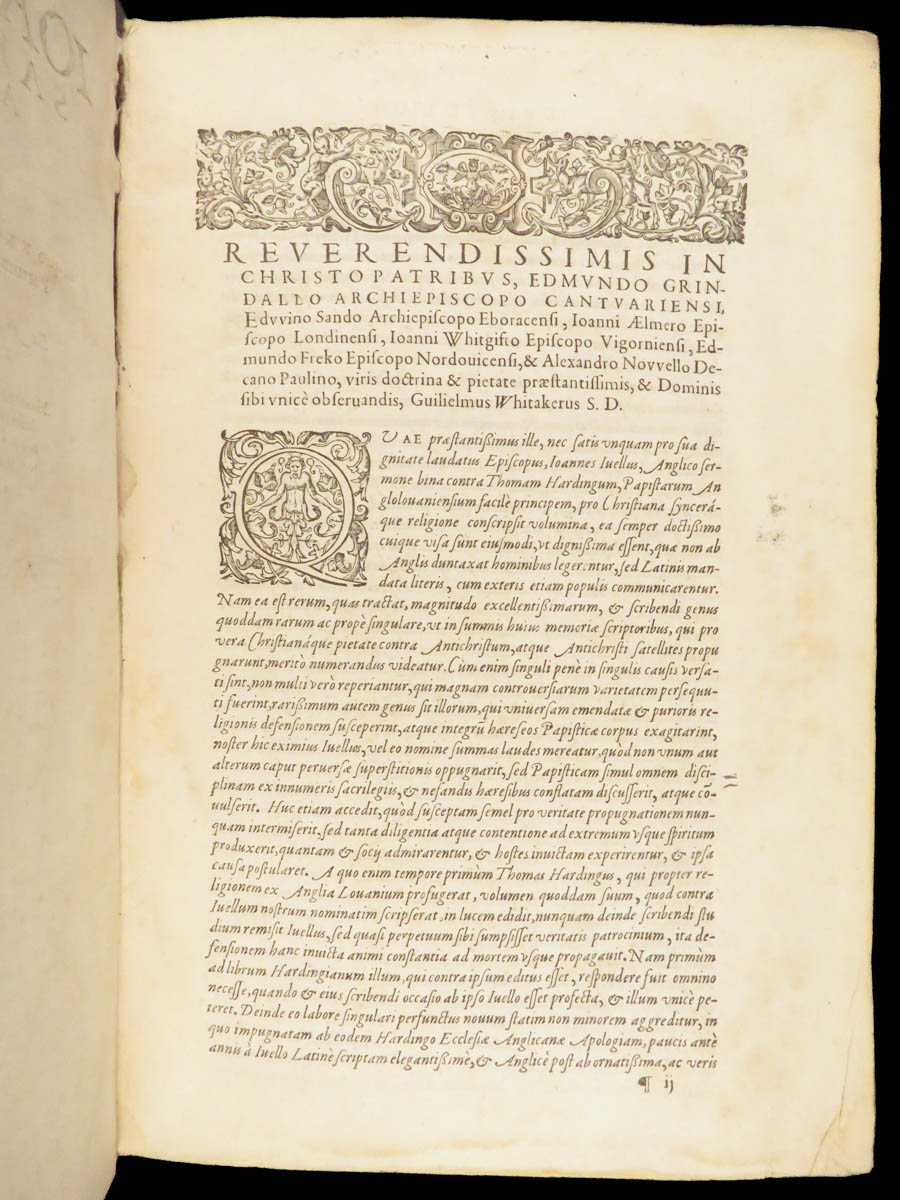 REVERENDISSIMIS IN
CHRISTO PATRIBVS, EDMVNDO GRIN-
DALLO ARCHIEPISCOPO CANTVARIENSI,
Edvvino Sando Archiepiſcopo Eboracenſi, Ioanni Ælmero Epi-
ſcopo Londinenſi, Ioanni Whitgifto Epiſcopo Vigornienſi, Ed-
mundo Freko Epiſcopo Nordouicenſi, & Alexandro Novvello De-
cano Paulino, viris doctrina & pietate præſtantiſſimis, & Dominis
ſibi vnicè obſeruandis, Guilielmus Whitakerus S. D.
QVAE præſtantißimus ille, nec ſatis vnquam pro ſua di-
gnitate laudatus Epiſcopus, Ioannes Iuellus, Anglico ſer-
mone bina contra Thomam Hardingum, Papiſtarum An
glolouanienſium facilè principem, pro Chriſtiana ſyncerá-
que religione conſcripſit volumina, ea ſemper doctißimo
cuique viſa ſunt eiuſmodi, vt digniſsima eſſent, quæ non ab
Anglis duntaxat hominibus legerentur, ſed Latinis man-
data literis, cum exteris etiam populis communicarentur.
Nam ea eſt rerum, quas tractat, magnitudo excellentißimarum, & ſcribendi genus
quoddam rarum ac propè ſingulare, vt in ſummis huius memoriæ ſcriptoribus, qui pro
vera Chriſtianáque pietate contra Antichriſtum, atque Antichriſti ſatellites propu
gnarunt, meritò numerandus videatur. Cùm enim ſinguli penè in ſingulis cauſis verſa-
ti ſint, non multi verò reperiantur, qui magnam controuerſiarum varietatem perſequu-
ti fuerint, rarißimum autem genus ſit illorum, qui vniuerſam emendatæ & purioris re-
ligionis defenſionem ſuſceperint, atque integrũ hæreſeos Papiſticæ corpus exagitarint,
noſter hic eximius Iuellus, vel eo nomine ſummas laudes mereatur, quòd non vnum aut
alterum caput peruerſæ ſuperſtitionis oppugnarit, ſed Papiſticam ſimul omnem diſci-
plinam ex innumeris ſacrilegijs, & nefandis hæreſibus conflatam diſcuſſerit, atque cõ-
vulſerit. Huc etiam accedit, quòd ſuſceptam ſemel pro veritate propugnationem nun-
quam intermiſerit, ſed tanta diligentia atque contentione ad extremum vſque ſpiritum
produxerit, quantam & ſocij admirarentur, & hoſtes inuictam experirentur, & ipſa
cauſa poſtularet. A quo enim tempore primùm Thomas Hardingus, qui propter re-
ligionem ex Anglia Louanium profugerat, volumen quoddam ſuum, quod contra
Iuellum noſtrum nominatim ſcripſerat, in lucem edidit, nunquam deinde ſcribendi ſtu
dium remiſit Iuellus, ſed quaſi perpetuum ſibi ſumpſiſſet veritatis patrocinium, ita de-
fenſionem hanc inuicta animi conſtantia ad mortem vſque propagauit. Nam primùm
ad librum Hardingianum illum, qui contra ipſum editus eſſet, reſpondere fuit omnino
neceſſe, quando & eius ſcribendi occaſio ab ipſo Iuello eſſet profecta, & illum vnicè pe-
teret. Deinde eo labore ſingulari perfunctus nouum ſtatim non minorem aggreditur, in
quo impugnatam ab eodem Hardingo Eccleſiæ Anglicanæ Apologiam, paucis antè
annis à Iuello Latinè ſcriptam elegantißimè, & Anglicè poſt ab ornatißima, ac veris
¶ ij